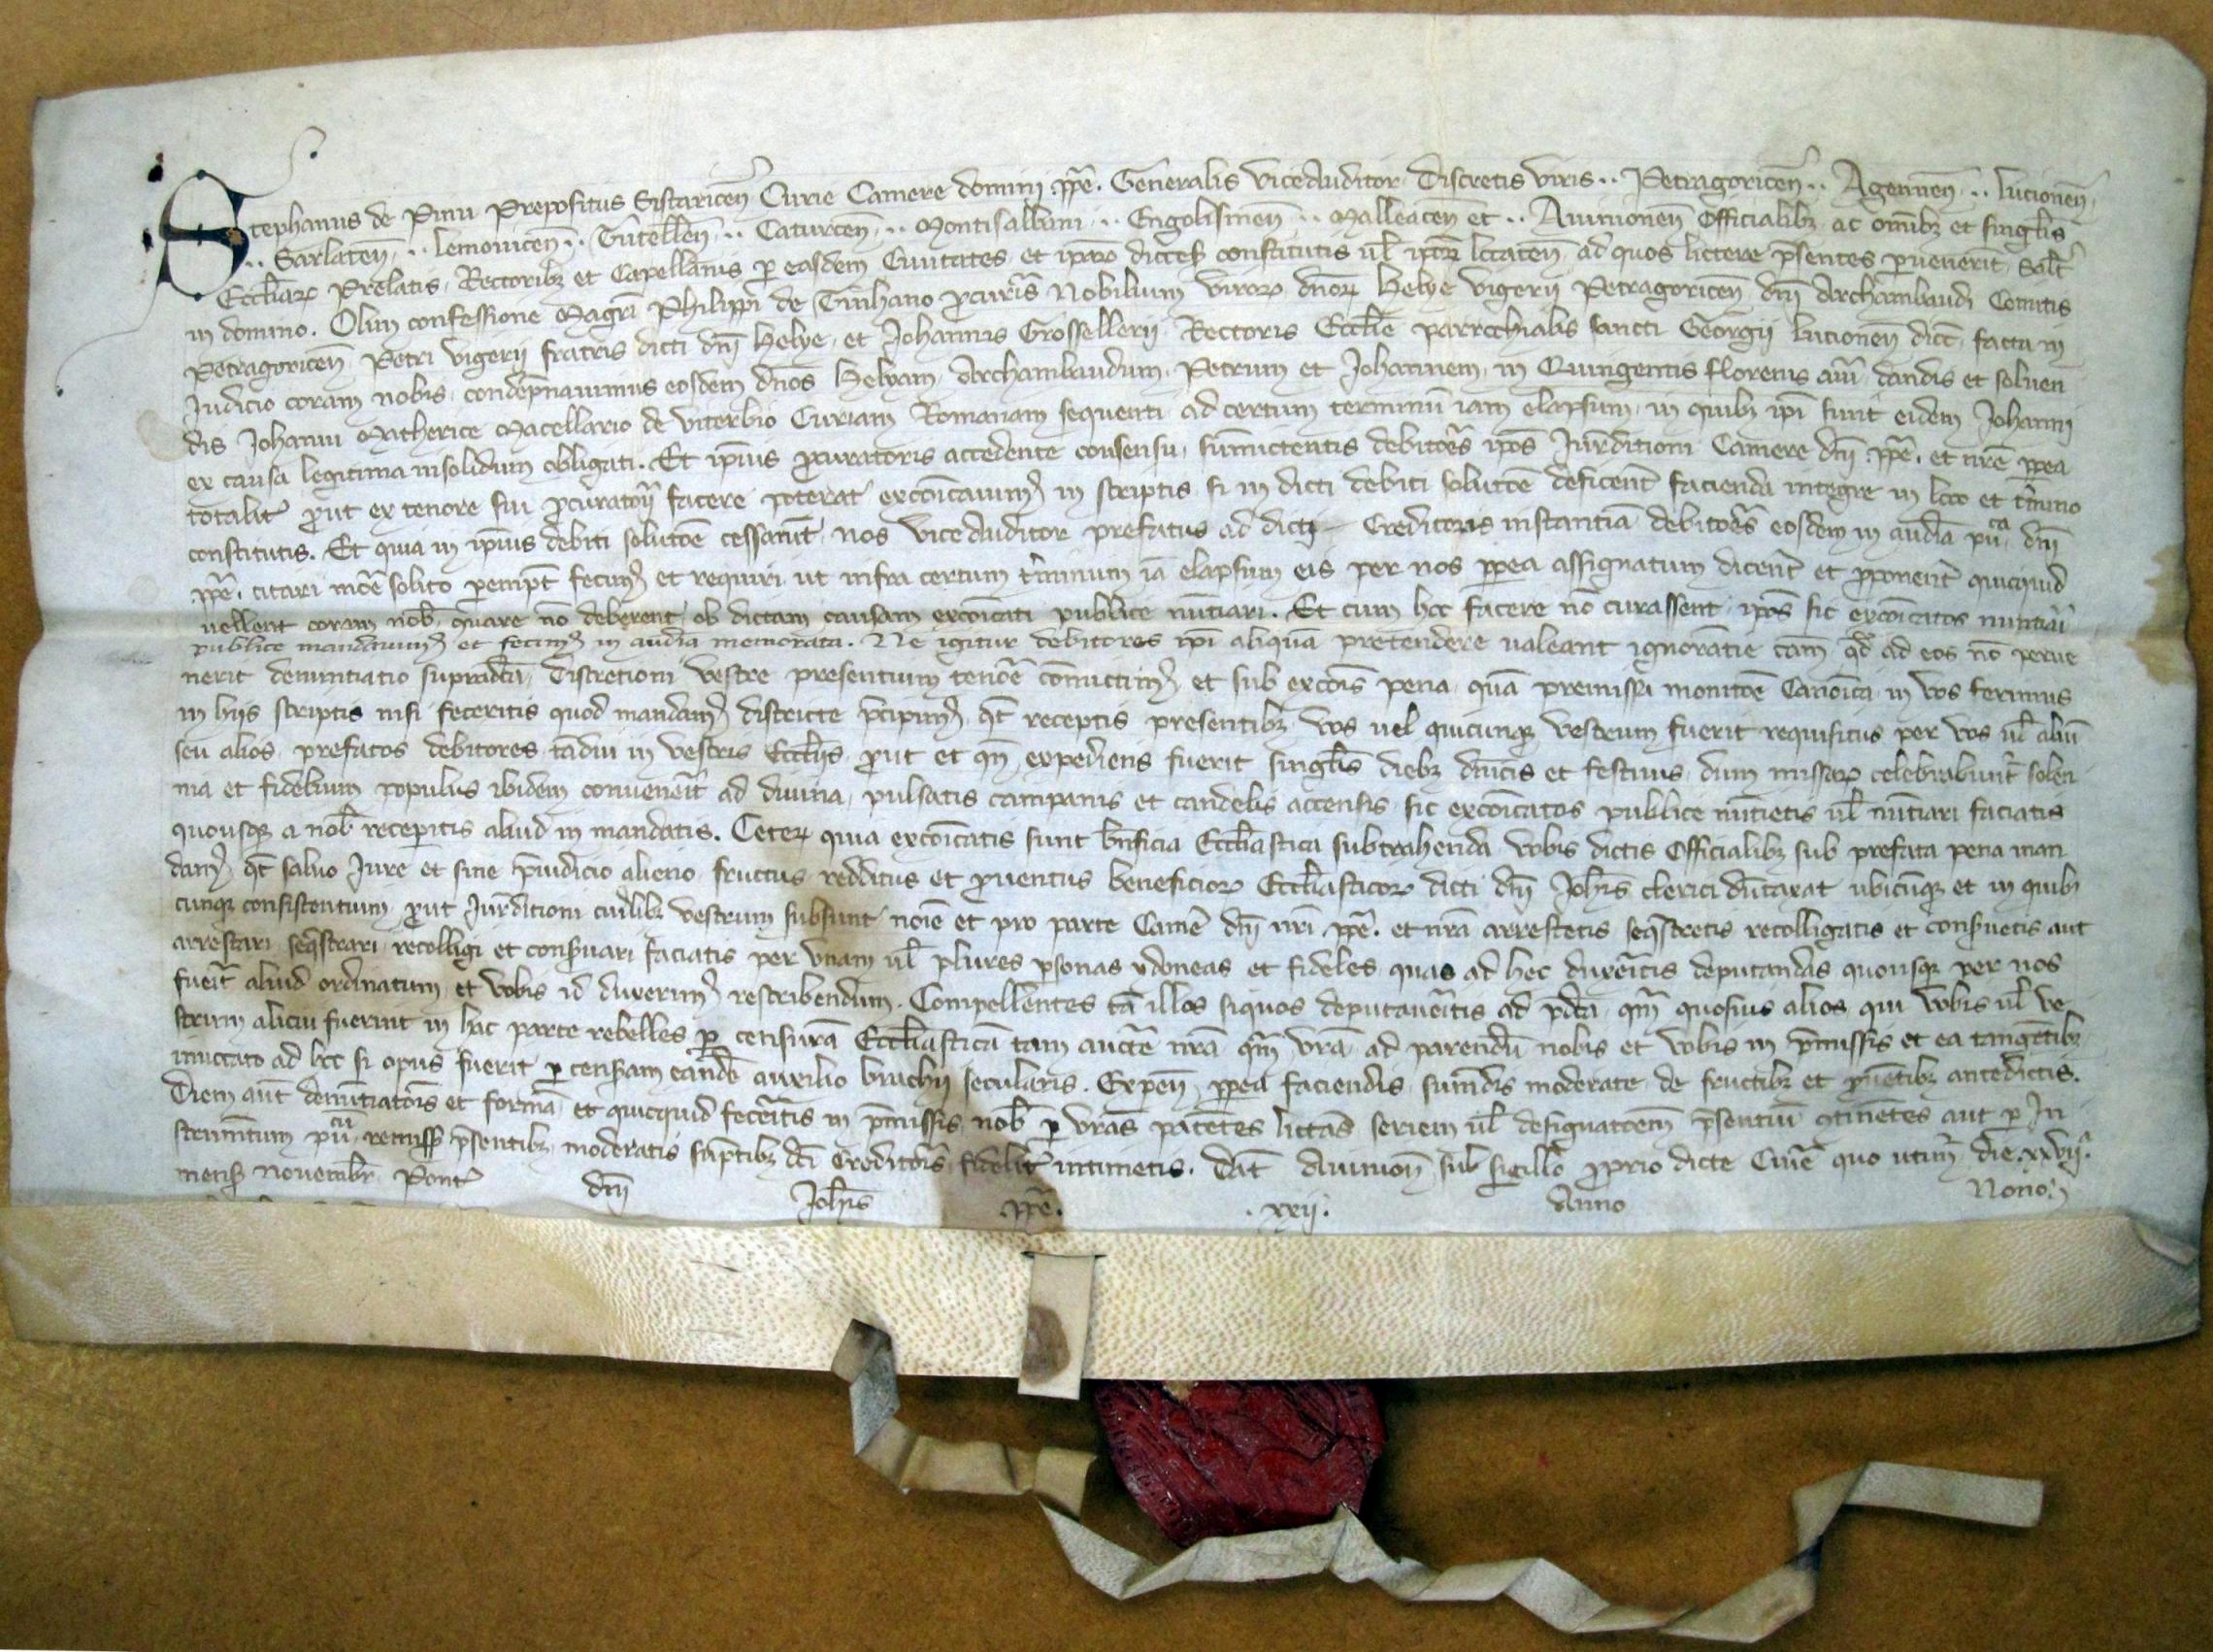 Stephanus de Pinu Prepositus Sistaricen̄ Curie Camere domini pp̄e. Generalis viceAuditor Discretis viris .. Petragoricen̄ .. Agennen̄ .. Lucionen̄
.. Sarlaten̄ .. Lemouicen̄ .. Tutellen̄ .. Caturcen̄ .. Montisalbani .. Engolismen̄ .. Malleacen̄ et .. Auinionen̄ Officialibꝫ ac om̄ibꝫ et singl̄is
Eccl̄iaꝝ Prelatis, Rectoribꝫ et Capellanis ꝑ easdem Ciuitates et ip̄aꝝ dioceš constitutis ul̄ ip̄oꝝ locaten̄ ad quos littere p̄sentes ꝑuenerit, sal̄t
in domino. Olim confessione Magr̄i Philippi de Tinhano ꝓcur̄is Nobilium viroꝝ dn̄oꝝ Helye vigerij Petragoricen̄ dn̄i Archambaudi Comitis
Petragoricen̄ Petri vigerij fratris dicti dn̄i Helye, et Johannis Grossellerij Rectoris Eccl̄ie parrochialis sancti Georgij Lucionen̄ dioc̄ facta in
Judicio coram nobis, condēpnauimus eosdem dn̄os Helyam, Archambaudum, Petrum et Johannem, in Quingentis florenis auri dandis et soluen
dis Johanni Matherice Macellario de viterbio Curiam Romanam sequenti ad certum terminū iam elapsum, in quibꝫ ip̄i sunt eidem Johanni
ex causa legitima insolidum obligati. Et ip̄ius ꝓcuratoris accedente consensu, sum̄ictentis debitor̄es ip̄os Jur̄ditioni Camere dn̄i pp̄e. et nr̄e ꝓpea
totalit̄ ꝓut ex tenore sui ꝓcuratorij facere poterat exco͞icauimꝰ in scriptis si in dicti debiti soluto͞e deficent̄ facienda integre in loco et t̄mino
constitutis. Et quia in ip̄ius debiti soluto͞e cessarūt, nos viceAuditor prefatus ad dicti Creditoris instantiā debitor̄es eosdem in aud̄ia pūᶜᵃ dn̄i
pp̄e. citari mor̄e solito ꝑempt̄ fecimꝰ et requiri ut infra certum t̄minum iā elapsum eis per nos ꝓpea assignatum dicent̄ et ꝓponent̄ quicquid
uellent coram nob̄ quare nō deberent ob dictam causam exco͞icati publice nūtiari. Et cum hoc facere nō curassent, ip̄os sic exco͞icatos nuntiari
publice mandauimꝰ et fecimꝰ in aud̄ia memorata. Ne igitur debitores ip̄i aliquā pretendere ualeant ignorātie cam̄ qd̄ ad eos nō perue
nerit denuntiatio supradc̄a, Discretioni vestre presentium tenor̄e co͞mictimꝰ et sub exco͞is pena, quā premissa monito͞e Cano͞ica in vos ferimus
in hijs scriptis nisi feceritis quod mandamꝰ districte p̄cipimꝰ qt̄ receptis presentibꝫ vos uel quicunqꝫ vestrum fuerit requisitus per vos ul̄ aliū
seu alios prefatos debitores tādiu in vestris Eccl̄ijs ꝓut et qn̄ expediens fuerit singl̄is diebꝫ dn̄icis et festiuis dum missaꝝ celebrabunt̄ solen
nia et fidelium populus ibidem conuenerit ad diuina, pulsatis campanis et candelis accensis sic exco͞icatos publice nūtietis ul̄ nūtiari faciatis
quousqꝫ a nob̄ receperitis aliud in mandatis. Ceteꝝ quia exco͞icatis sunt bn̄ficia Eccl̄iastica subtrahenda vobis dictis Officialibꝫ sub prefata pena man
damꝰ qt̄ saluo Jure et sine p̄iudicio alieno fructus redditus et ꝓuentus beneficioꝝ Eccl̄iasticoꝝ dicti dn̄i Joh̄is clerici dūtaxat ubicūqꝫ et in quibꝫ
cunqꝫ consistentium ꝓut Jur̄ditioni cuil̄ibꝫ vestrum subsunt no͞ie et pro parte Camer̄e dn̄i nr̄i pp̄e. et nr̄a arrestetis seq̄stretis recolligatis et conseruetis aut
arrestari seq̄strari recolligi et conseruari faciatis per vnam ul̄ plures ꝑsonas ydoneas et fideles quas ad hec duxeritis deputandas quousqꝫ per nos
fuerit aliud ordinatum et vobis id duxerimꝰ rescribendum. Compellentes tā illos siquos deputaueritis ad p̄dc̄a qm̄ quosuis alios qui vobis ul̄ ve
strum alicui fuerint in hac parte rebelles ꝑ censurā Eccl̄iasticā tam auct̄e nr̄a qm̄ vr̄a ad parendū nobis et vobis in p̄missis et ea tangētibꝫ
inuocato ad hoc si opus fuerit ꝑ censuram eandē auxilio brachij secularis. Expen̄ ꝓpea faciendis, sum̄dis moderate de fructibꝫ et ꝓuētibꝫ antedictis.
Diem aūt denūtiato͞is et formā et quicquid feceritis in p̄missis nob̄ ꝑ vr̄as patētes litt̄as seriem ul̄ designato͞em p̄sentiū ꝯtinētes aut ꝑ In
strumētum pūᶜᵘ remissis p̄sentibꝫ moderatis sūptibꝫ dc̄i Creditoris fidelit̄ intimetis. Dat̄ Auinion̄ sub sigillo ꝓprio dicte Curie quo utimꝰ die .xxvij.
mensis nouembr̄ Pont̄ dn̄i Joh̄is pp̄e. .xxij. Anno Nono.